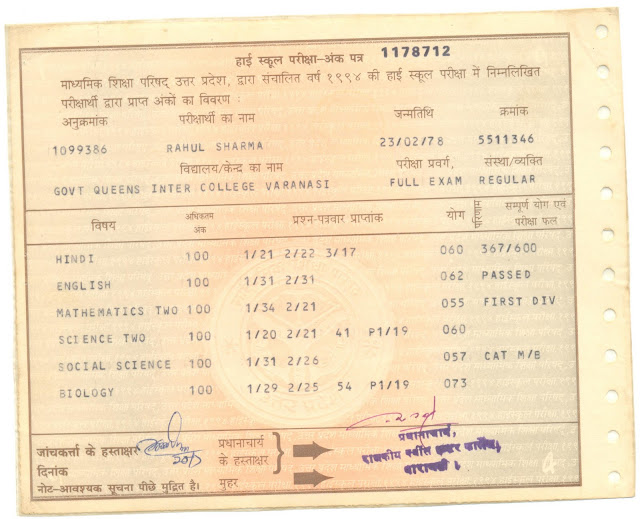 हाई स्कूल परीक्षा-अंक पत्र 1178712
माध्यमिक शिक्षा परिषद् उत्तर प्रदेश, द्वारा संचालित वर्ष १९९४ की हाई स्कूल परीक्षा में निम्नलिखित
परीक्षार्थी द्वारा प्राप्त अंकों का विवरण :
अनुक्रमांक परीक्षार्थी का नाम जन्मतिथि क्रमांक
1099386 RAHUL SHARMA 23/02/78 5511346
विद्यालय/केन्द्र का नाम परीक्षा प्रवर्ग, संस्था/व्यक्ति
GOVT QUEENS INTER COLLEGE VARANASI FULL EXAM REGULAR
विषय अधिकतम अंक प्रश्न-पत्रवार प्राप्तांक योग परिणाम सम्पूर्ण योग एवं परीक्षा फल
HINDI 100 1/21 2/22 3/17 060 367/600
ENGLISH 100 1/31 2/31 062 PASSED
MATHEMATICS TWO 100 1/34 2/21 055 FIRST DIV
SCIENCE TWO 100 1/20 2/21 41 P1/19 060
SOCIAL SCIENCE 100 1/31 2/26 057 CAT M/B
BIOLOGY 100 1/29 2/25 54 P1/19 073
जांचकर्त्ता के हस्ताक्षर प्रधानाचार्य के हस्ताक्षर
प्रधानाचार्य,
राजकीय क्वींस इण्टर कालेज,
वाराणसी ।
दिनांक
मुहर
नोट-आवश्यक सूचना पीछे मुद्रित है।